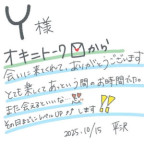 Y様
オキニトークから
会いに来てくれて、ありがとうございます
とても楽しくてあっという間のお時間でした
また会えるといいな
その日までにレベルUPがします!!
2025.10/15 平沢